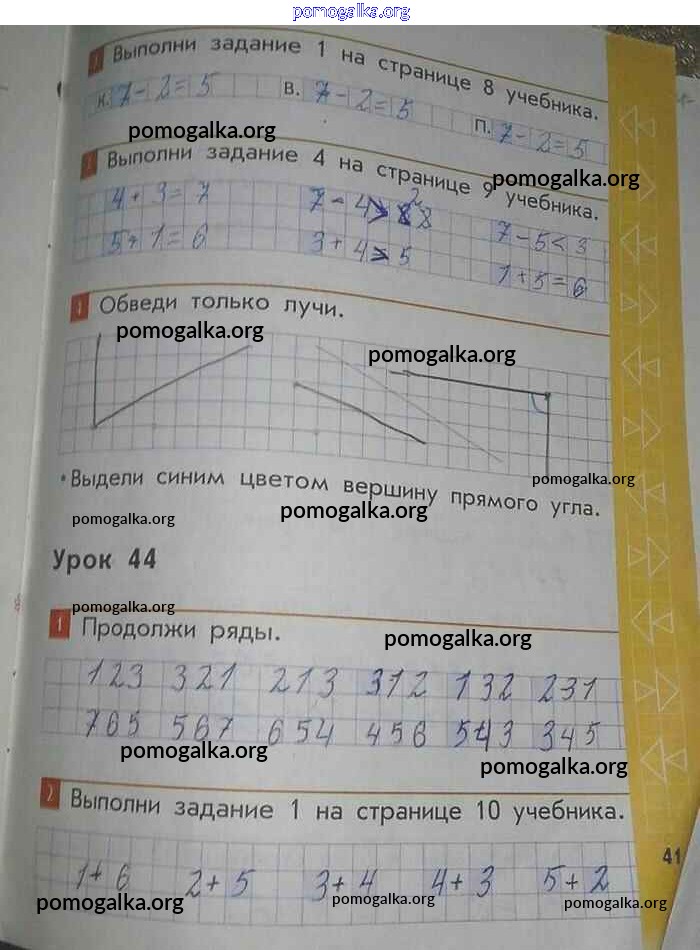 pomogalka.org
1 Выполни задание 1 на странице 8 учебника.
К. 7-2=5 В. 7-2=5 П. 7-2=5
pomogalka.org
Выполни задание 4 на странице 9 учебника.
pomogalka.org
4+3=7 7-4> 2 7-5<3
5+1=6 3+4>5 1+5=6
Обведи только лучи.
pomogalka.org
pomogalka.org
• Выдели синим цветом вершину прямого угла.
pomogalka.org
pomogalka.org
pomogalka.org
Урок 44
pomogalka.org
1 Продолжи ряды.
pomogalka.org
123 321 213 312 132 231
765 567 654 456 543 345
pomogalka.org
pomogalka.org
2 Выполни задание 1 на странице 10 учебника.
41
1+6 2+5 3+4 4+3 5+2
pomogalka.org
pomogalka.org
pomogalka.org